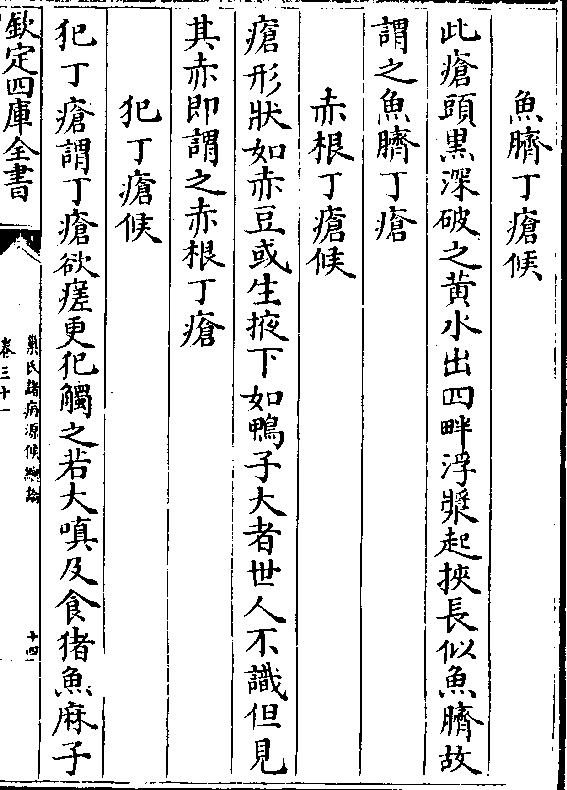 魚臍丁瘡候
此瘡頭黑深破之黄水出四畔浮漿起挾長似魚臍故
謂之魚臍丁瘡
赤根丁瘡候
瘡形狀如赤豆或生掖下如鴨子大者世人不識但見
其赤即謂之赤根丁瘡
犯丁瘡候
犯丁瘡謂丁瘡欲瘥更犯觸之若大嗔及食猪魚麻子
欽定四庫全書
巢氏諸病源候總論
卷三十一
十四